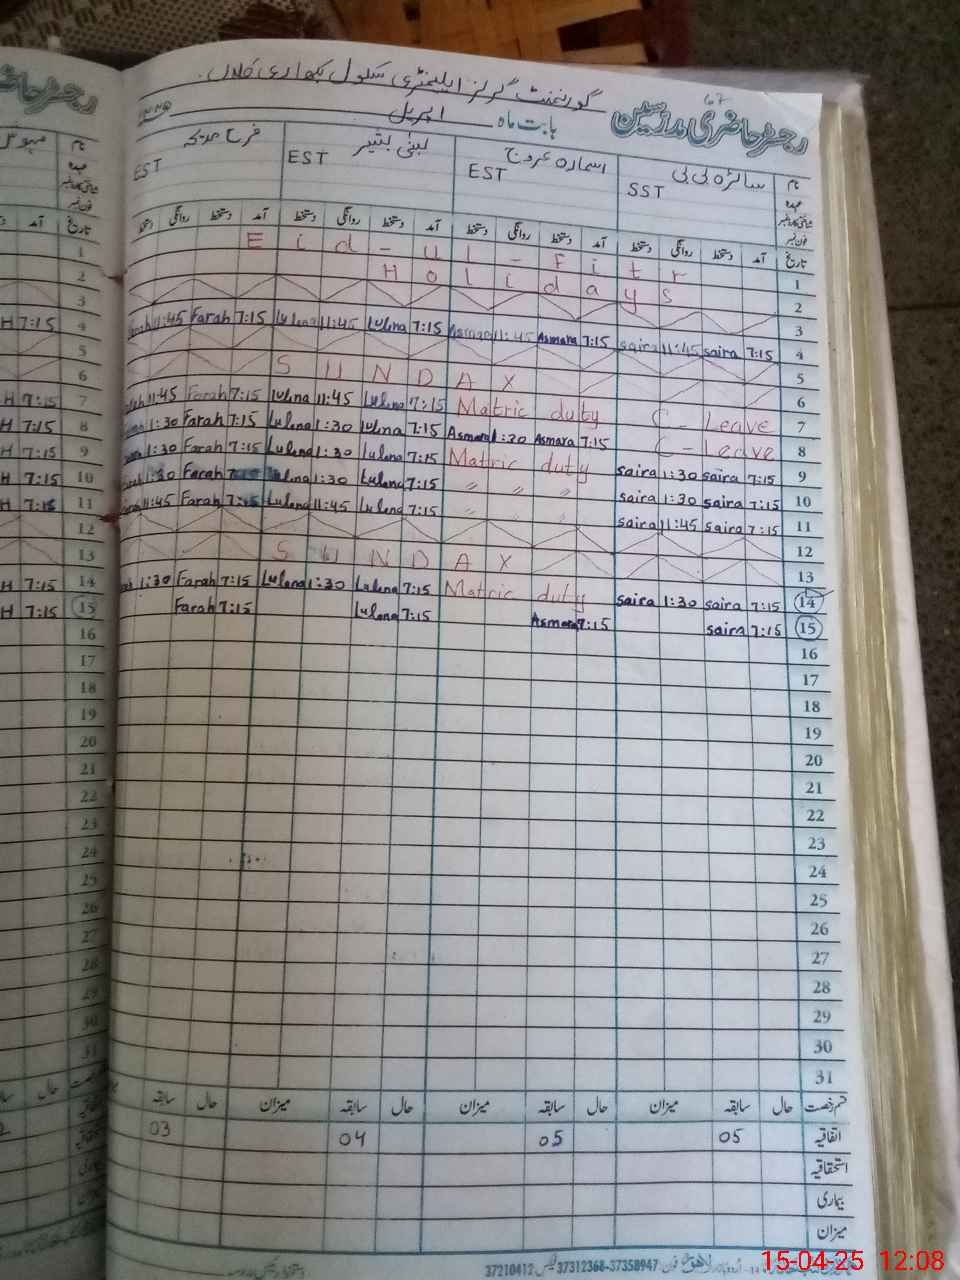 67
رجسٹر حاضری مدرسین
گورنمنٹ گرلز ایلیمنٹری سکول بکھاری کلاں
بابت ماہ اپریل
نام سائرہ بی بی اسمارہ عروج لبنیٰ بشیر فرح
عہدہ SST EST EST EST
فون نمبر
تاریخ آمد دستخط روانگی دستخط آمد دستخط روانگی دستخط آمد دستخط روانگی دستخط آمد دستخط روانگی
Eid-ul-Fitr 1
Holidays 2
3
11:45 Farah 7:15 Lubna 11:45 Lubna 7:15 Asmara 11:45 Asmara 7:15 saira 11:45 saira 7:15 4
5
SUNDAY 6
11:45 Farah 7:15 Lubna 11:45 Lubna 7:15 Matric duty C-Leave 7
1:30 Farah 7:15 Lubna 1:30 Lubna 7:15 Asmara 1:30 Asmara 7:15 C-Leave 8
1:30 Farah 7:15 Lubna 1:30 Lubna 7:15 Matric duty saira 1:30 saira 7:15 9
1:30 Farah Lubna 1:30 Lubna 7:15 " " " saira 1:30 saira 7:15 10
11:45 Farah 7:15 Lubna 11:45 Lubna 7:15 " " " saira 11:45 saira 7:15 11
12
SUNDAY 13
1:30 Farah 7:15 Lubna 1:30 Lubna 7:15 Matric duty saira 1:30 saira 7:15 14
Farah 7:15 Lubna 7:15 Asmara 7:15 saira 7:15 15
16
17
18
19
20
21
22
23
24
25
26
27
28
29
30
31
قسم رخصت حال سابقہ میزان حال سابقہ میزان حال سابقہ میزان حال سابقہ
اتفاقیہ 05 05 04 03
استحقاقیہ
بیماری
میزان
لاہور فون: 37312368-37358947 فیکس 37210412
15-04-25 12:08